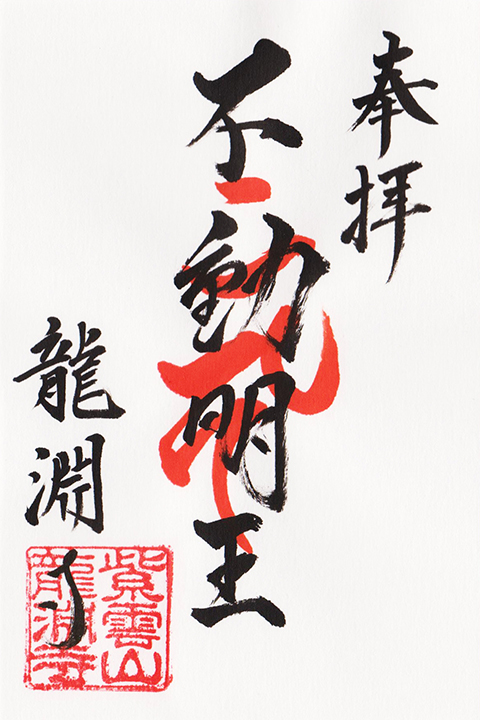 奉拝
不動明王
龍淵寺
紫雲山
龍淵寺